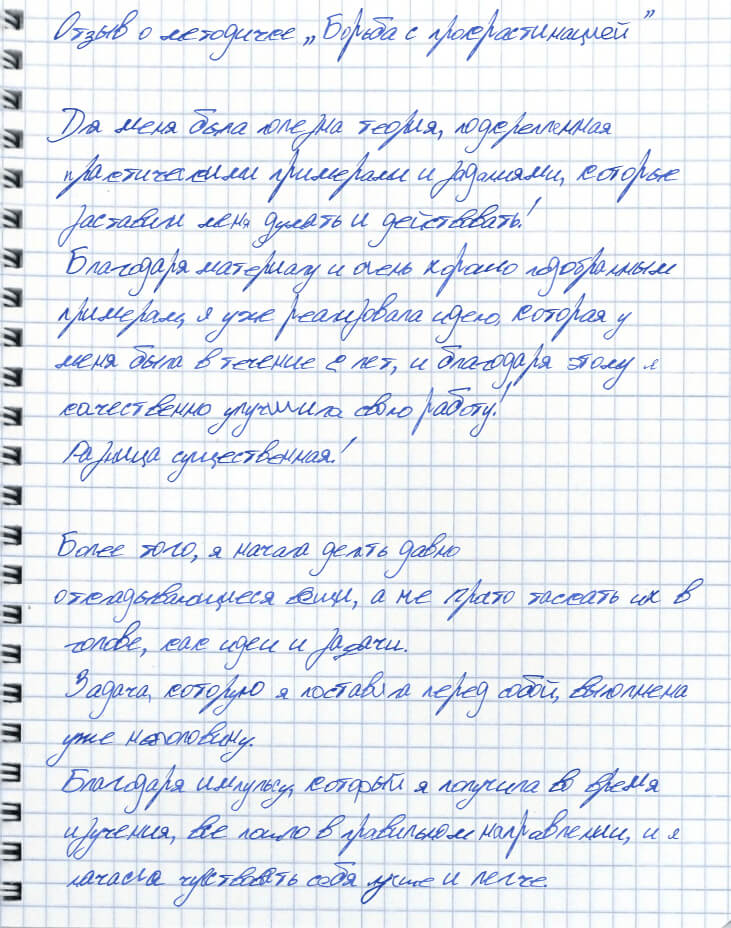 Отзыв о методичке „Борьба с прокрастинацией”
Для меня была полезна теория, подкрепленная
практическими примерами и заданиями, которые
заставили меня думать и действовать!
Благодаря материалу и очень хорошо подобранным
примерам, я уже реализовала идею, которая у
меня была в течение 2 лет, и благодаря этому я
качественно улучшила свою работу!
Разница существенная!
Более того, я начала делать давно
откладывающиеся вещи, а не просто таскать их в
голове, как идеи и задачи.
Задача, которую я поставила перед собой, выполнена
уже наполовину.
Благодаря импульсу, который я получила во время
изучения, все пошло в правильном направлении, и я
начала чувствовать себя лучше и легче.